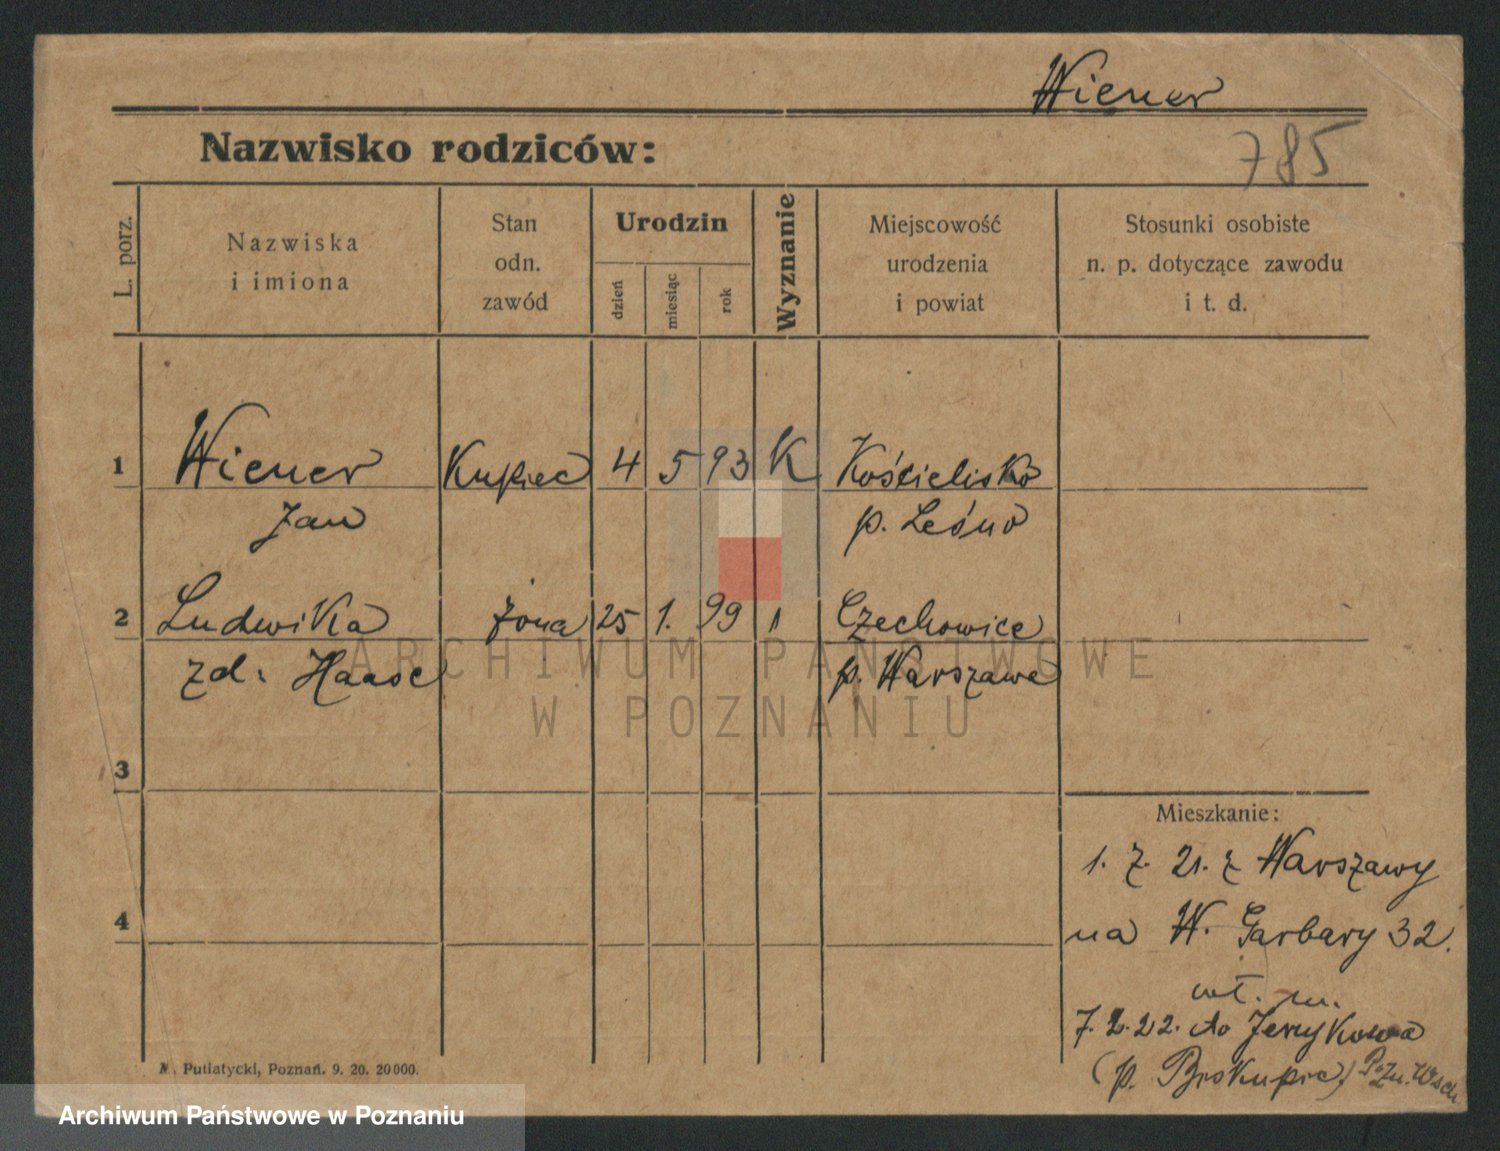 Wiener
Nazwisko rodziców:
785
L. porz.
Nazwiska
i imiona
Stan
odn.
zawód
Urodzin
dzień
miesiąc
rok
Wyznanie
Miejscowość
urodzenia
i powiat
Stosunki osobiste
n. p. dotyczące zawodu
i t. d.
1 Wiener Kupiec 4 5 93 K Kościelisko
Jan p. Leśno
2 Ludwika żona 25 1. 99 " Czechowice
zd. Haase p. Warszawa
3
4
Mieszkanie:
1. 7. 21. z Warszawy
na W. Garbary 32.
wł. m.
7. 2. 22. do Jerzykowa
(p. Biskupice) Pozn. Wsch.
M. Putiatycki, Poznań. 9. 20. 20000.
ARCHIWUM PAŃSTWOWE
W POZNANIU
Archiwum Państwowe w Poznaniu